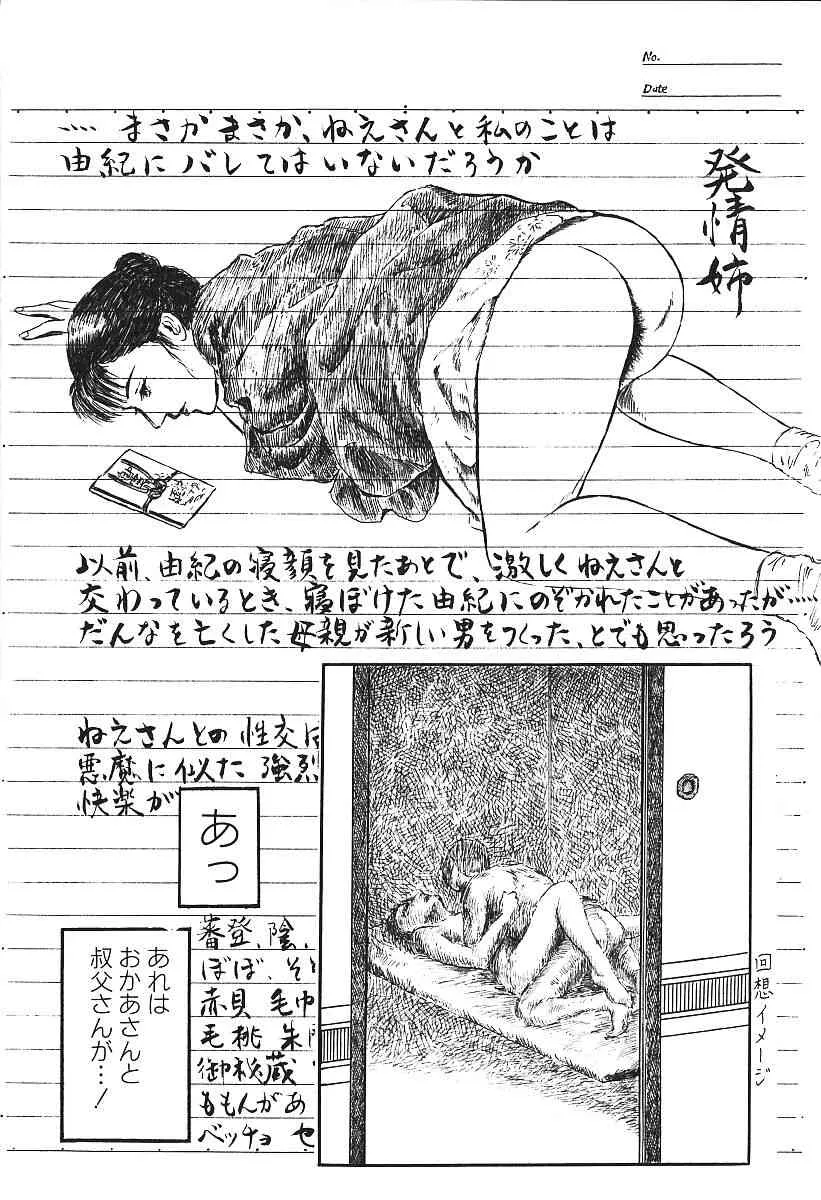 No.
Date
‥‥ まさかまさか、ねえさんと私のことは
由紀にバレてはいないだろうか
発情姉
以前、由紀の寝顔を見たあとで、激しくねえさんと
交わっているとき、寝ぼけた由紀にのぞかれたことがあったが‥‥
だんなを亡くした母親が新しい男をつくった、とでも思ったろう
ねえさんとの性交は
悪魔に似た強烈
快楽が
あっ
あれは
おかあさんと
叔父さんが…!
蕃登、陰、
ぼぼ、そ
赤貝 毛巾
毛桃 朱門
御秘蔵
ももんがあ
ベッチョ セ
回想イメージ